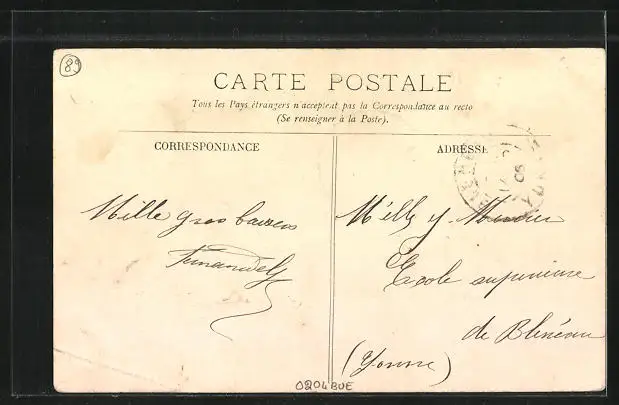 89
CARTE POSTALE
Tous les Pays étrangers n'acceptent pas la Correspondance au recto
(Se renseigner à la Poste).
CORRESPONDANCE
ADRESSE
Mille gros baisers
Mlle Y.
École supérieure
de Blèneau
(Yonne)
0204BUE